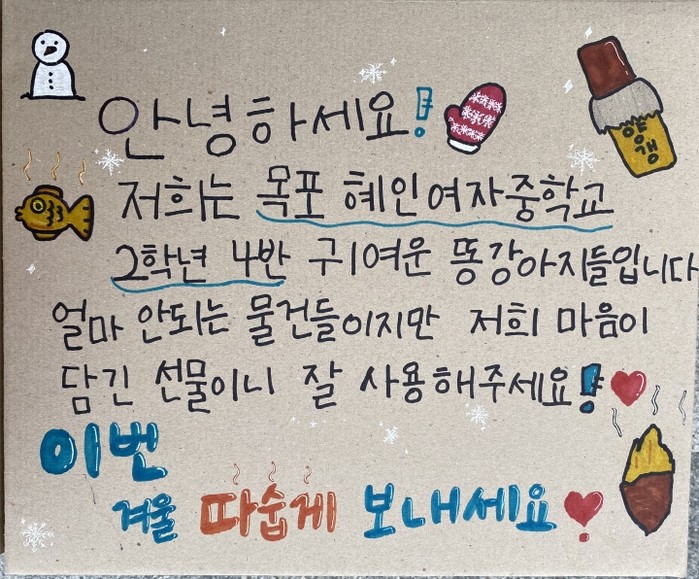 안녕하세요!
양갱
저희는 목포 혜인여자중학교
2학년 4반 귀여운 똥강아지들입니다
얼마 안되는 물건들이지만 저희 마음이
담긴 선물이니 잘 사용해주세요!
이번
겨울 따숩게 보내세요